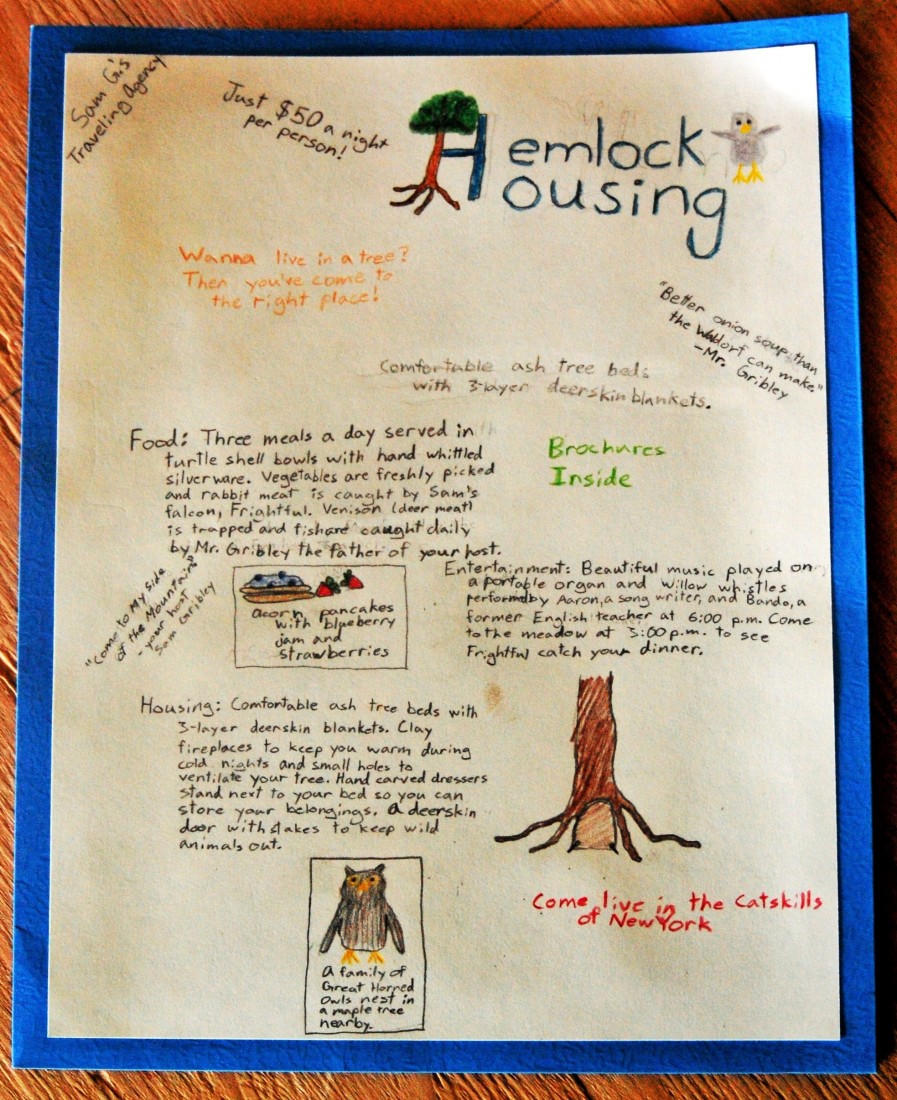 Sam G's
Traveling Agency
Just $50 a night
per person!
Hemlock
Housing
Wanna live in a tree?
Then you've come to
the right place!
"Better onion soup than
the Waldorf can make."
-Mr. Gribley
Comfortable ash tree beds
with 3-layer deerskin blankets.
Food: Three meals a day served in
turtle shell bowls with hand whittled
silverware. Vegetables are freshly picked
and rabbit meat is caught by Sam's
falcon, Frightful. Venison (deer meat)
is trapped and fish are caught daily
by Mr. Gribley the father of your host.
Brochures
Inside
"Come to My side
of the Mountain"
- your host
Sam Gribley
acorn pancakes
with blueberry
jam and
strawberries
Entertainment: Beautiful music played on
a portable organ and willow whistles
performed by Aaron, a song writer, and Bando, a
former English teacher at 6:00 p.m. Come
to the meadow at 5:00 p.m. to see
Frightful catch your dinner.
Housing: Comfortable ash tree beds with
3-layer deerskin blankets. Clay
fireplaces to keep you warm during
cold nights and small holes to
ventilate your tree. Hand carved dressers
stand next to your bed so you can
store your belongings. A deerskin
door with stakes to keep wild
animals out.
Come live in the Catskills
of New York
A family of
Great Horned
Owls nest in
a maple tree
nearby.